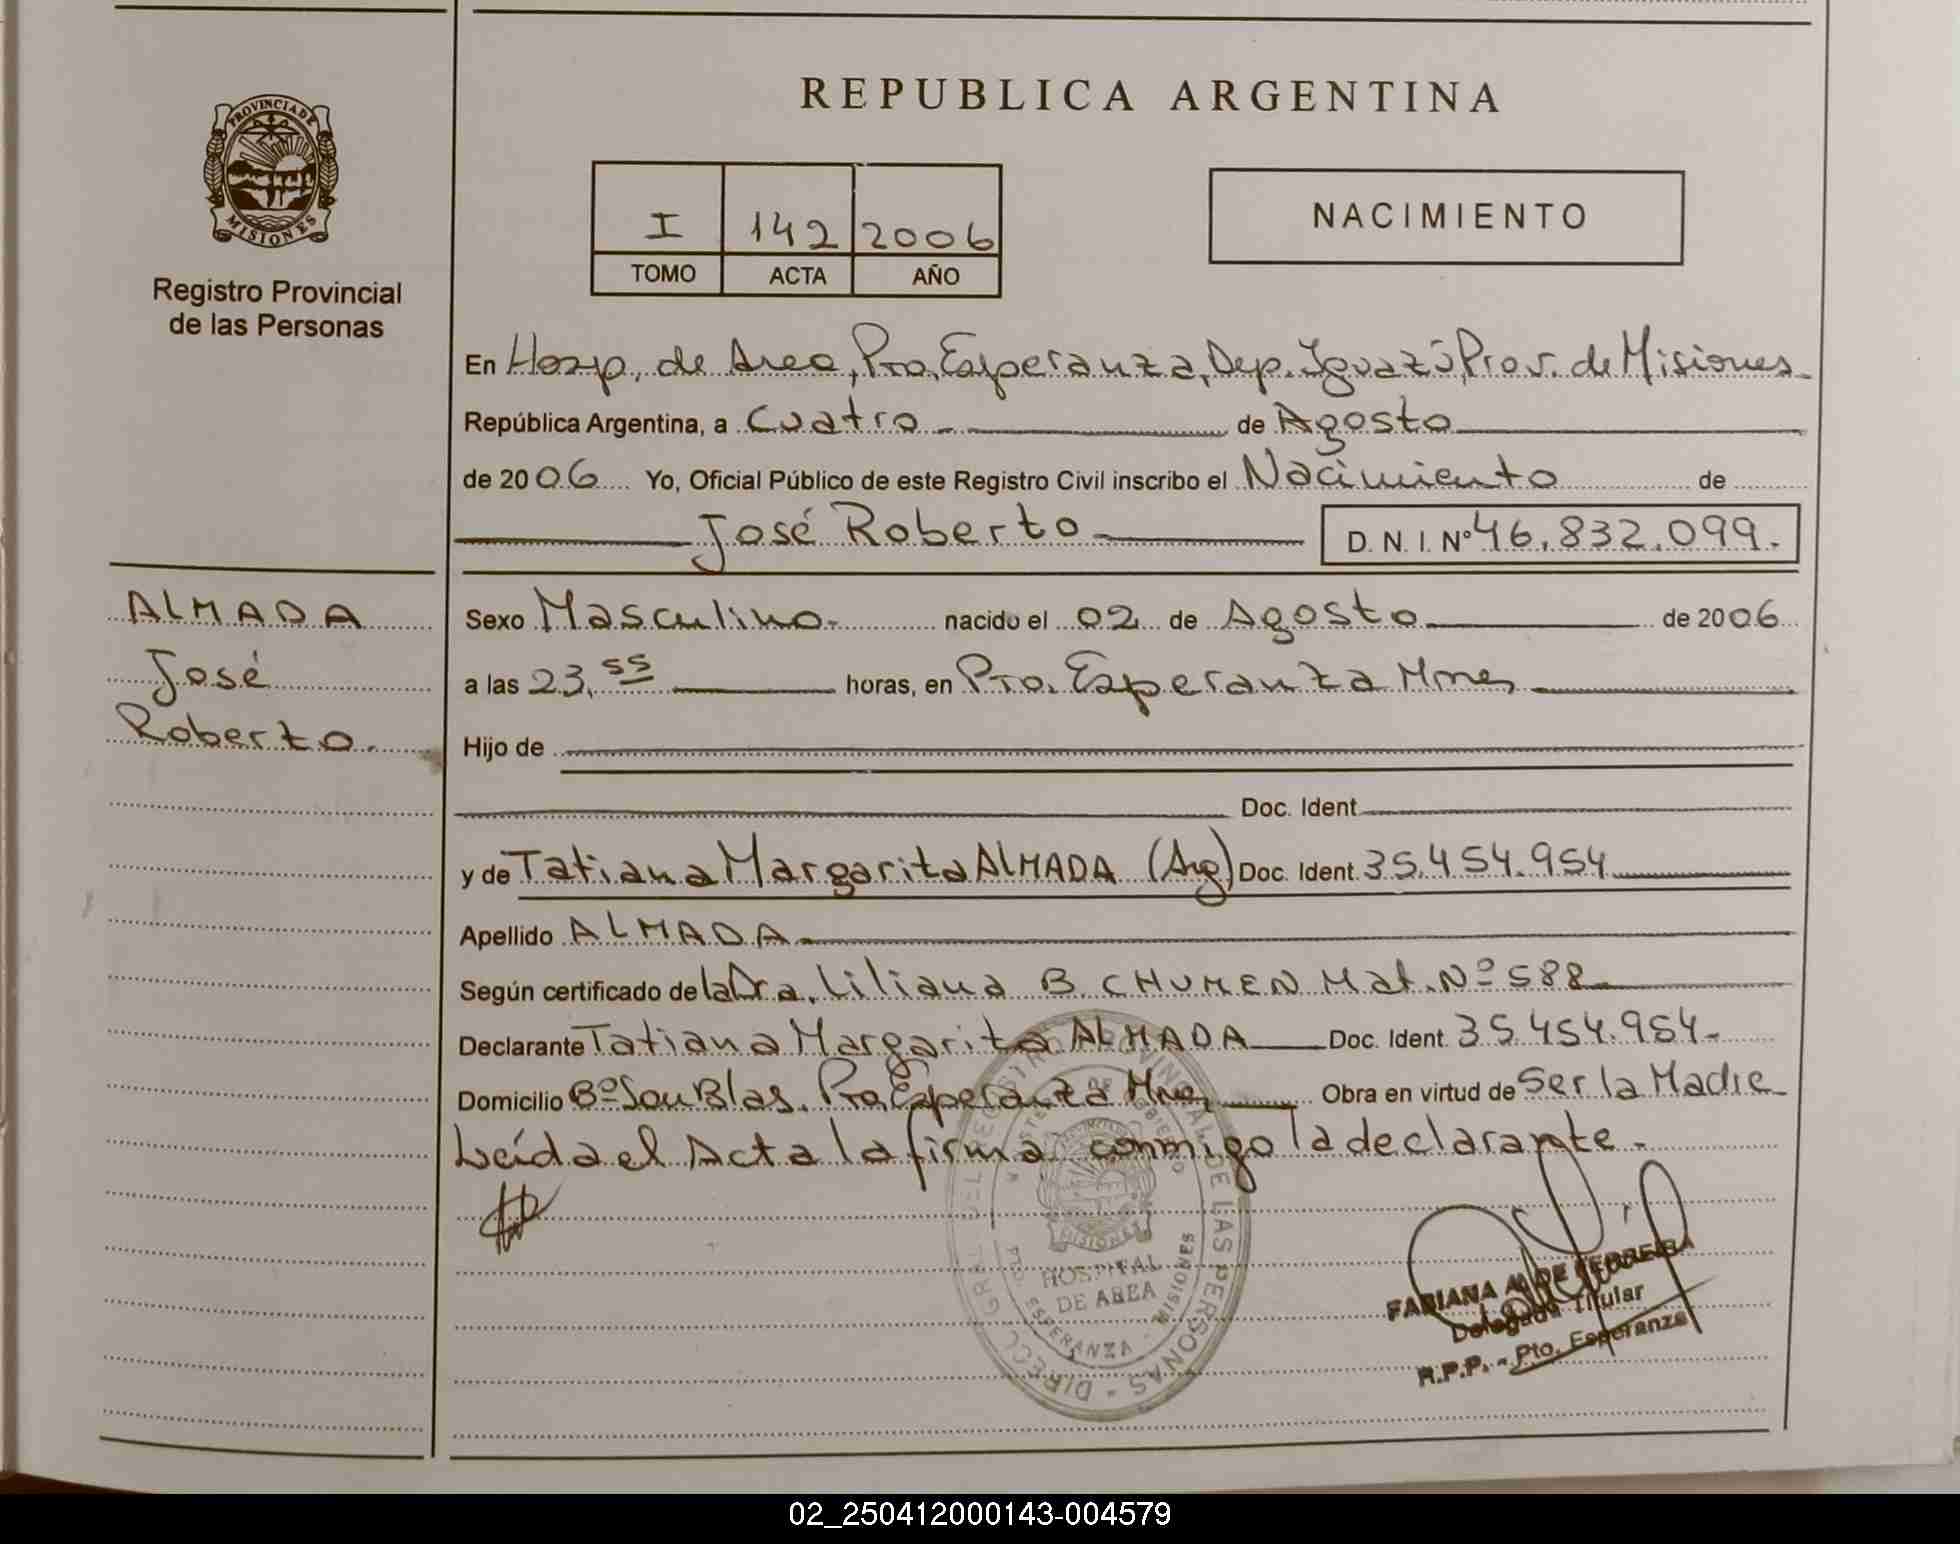 REPUBLICA ARGENTINA
PROVINCIA DE
MISIONES
Registro Provincial
de las Personas
I 142 2006
TOMO ACTA AÑO
NACIMIENTO
En Hosp. de Area, Pto. Esperanza, Dep. Iguazú, Prov. de Misiones
República Argentina, a Cuatro de Agosto
de 2006 Yo, Oficial Público de este Registro Civil inscribo el Nacimiento de
José Roberto D. N. I. Nº 46.832.099.
ALMADA
José
Roberto.
Sexo Masculino. nacido el 02 de Agosto de 2006
a las 23,55 horas, en Pto. Esperanza Mnes
Hijo de
Doc. Ident.
y de Tatiana Margarita ALMADA (Arg) Doc. Ident. 35.454.954
Apellido ALMADA
Según certificado de la Dra. Liliana B. CHUMEN Mat. Nº 588
Declarante Tatiana Margarita ALMADA Doc. Ident. 35.454.954.
Domicilio Bº San Blas. Pto. Esperanza Mnes Obra en virtud de Ser la Madre
Leída el Acta la firma conmigo la declarante.
DIRECC. GRAL. DEL REGISTRO PROVINCIAL DE LAS PERSONAS
MISIONES
HOSPITAL
DE AREA
PTO. ESPERANZA - MISIONES
FABIANA M. DE FERREIRA
Delegada Titular
R.P.P. - Pto. Esperanza
02_250412000143-004579